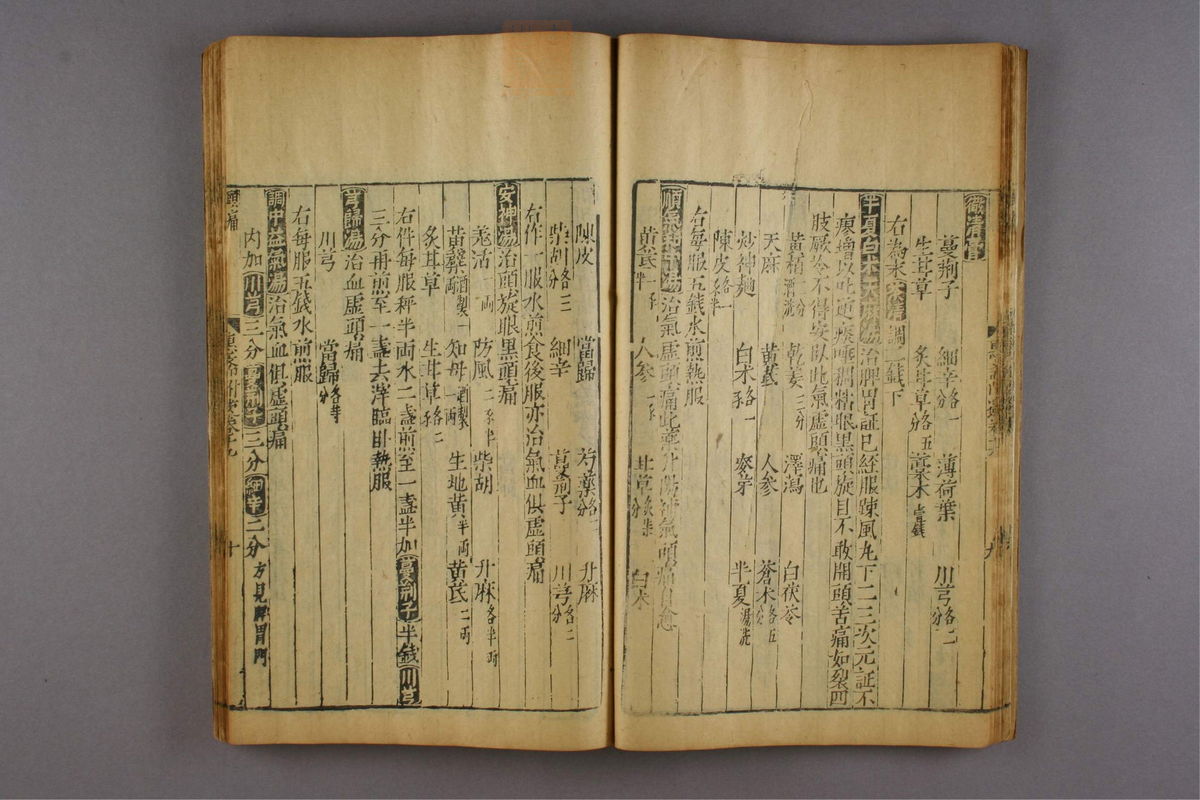 徹清膏
蔓荊子 細辛各一分 薄荷葉 川芎各二分
生甘草 炙甘草各五分 藁本一錢
右為末茶清調二錢下
半夏白朮天麻湯治脾胃証已經服踈風丸下二三次元証不
瘳增以吐逆痰唾稠粘眼黑頭旋目不敢開頭苦痛如裂四
肢厥冷不得安臥此氣虛頭痛也
黃栢二分酒洗 乾姜三分 澤瀉 白茯苓
天麻 黃芪 人參 蒼朮各五分
炒神麯 白朮各一 麥芽 半夏湯洗
陳皮各一
右每服五錢水煎熱服
順氣和中湯治氣虛頭痛此藥升陽補氣頭痛自愈
黃芪半 人參 甘草炙 白朮
陳皮 當歸 芍藥各 升麻
柴胡各三 細辛 蔓荊子 川芎各二分
右作一服水煎食後服亦治氣血俱虛頭痛
安神湯治頭旋眼黑頭痛
羌活一兩 防風二 柴胡 升麻各半兩
黃蘗酒製一兩 知母酒製一兩 生地黃半兩 黃芪二兩
炙甘草 生甘草各二
右件每服秤半兩水二盞煎至一盞半加蔓荊子半錢川芎
三分再煎至一盞去滓臨臥熱服
芎歸湯治血虛頭痛
川芎 當歸各等分
右每服五錢水煎服
調中益氣湯治氣血俱虛頭痛
內加川芎三分蔓荊子三分細辛二分方見脾胃門
頭痛
十
九